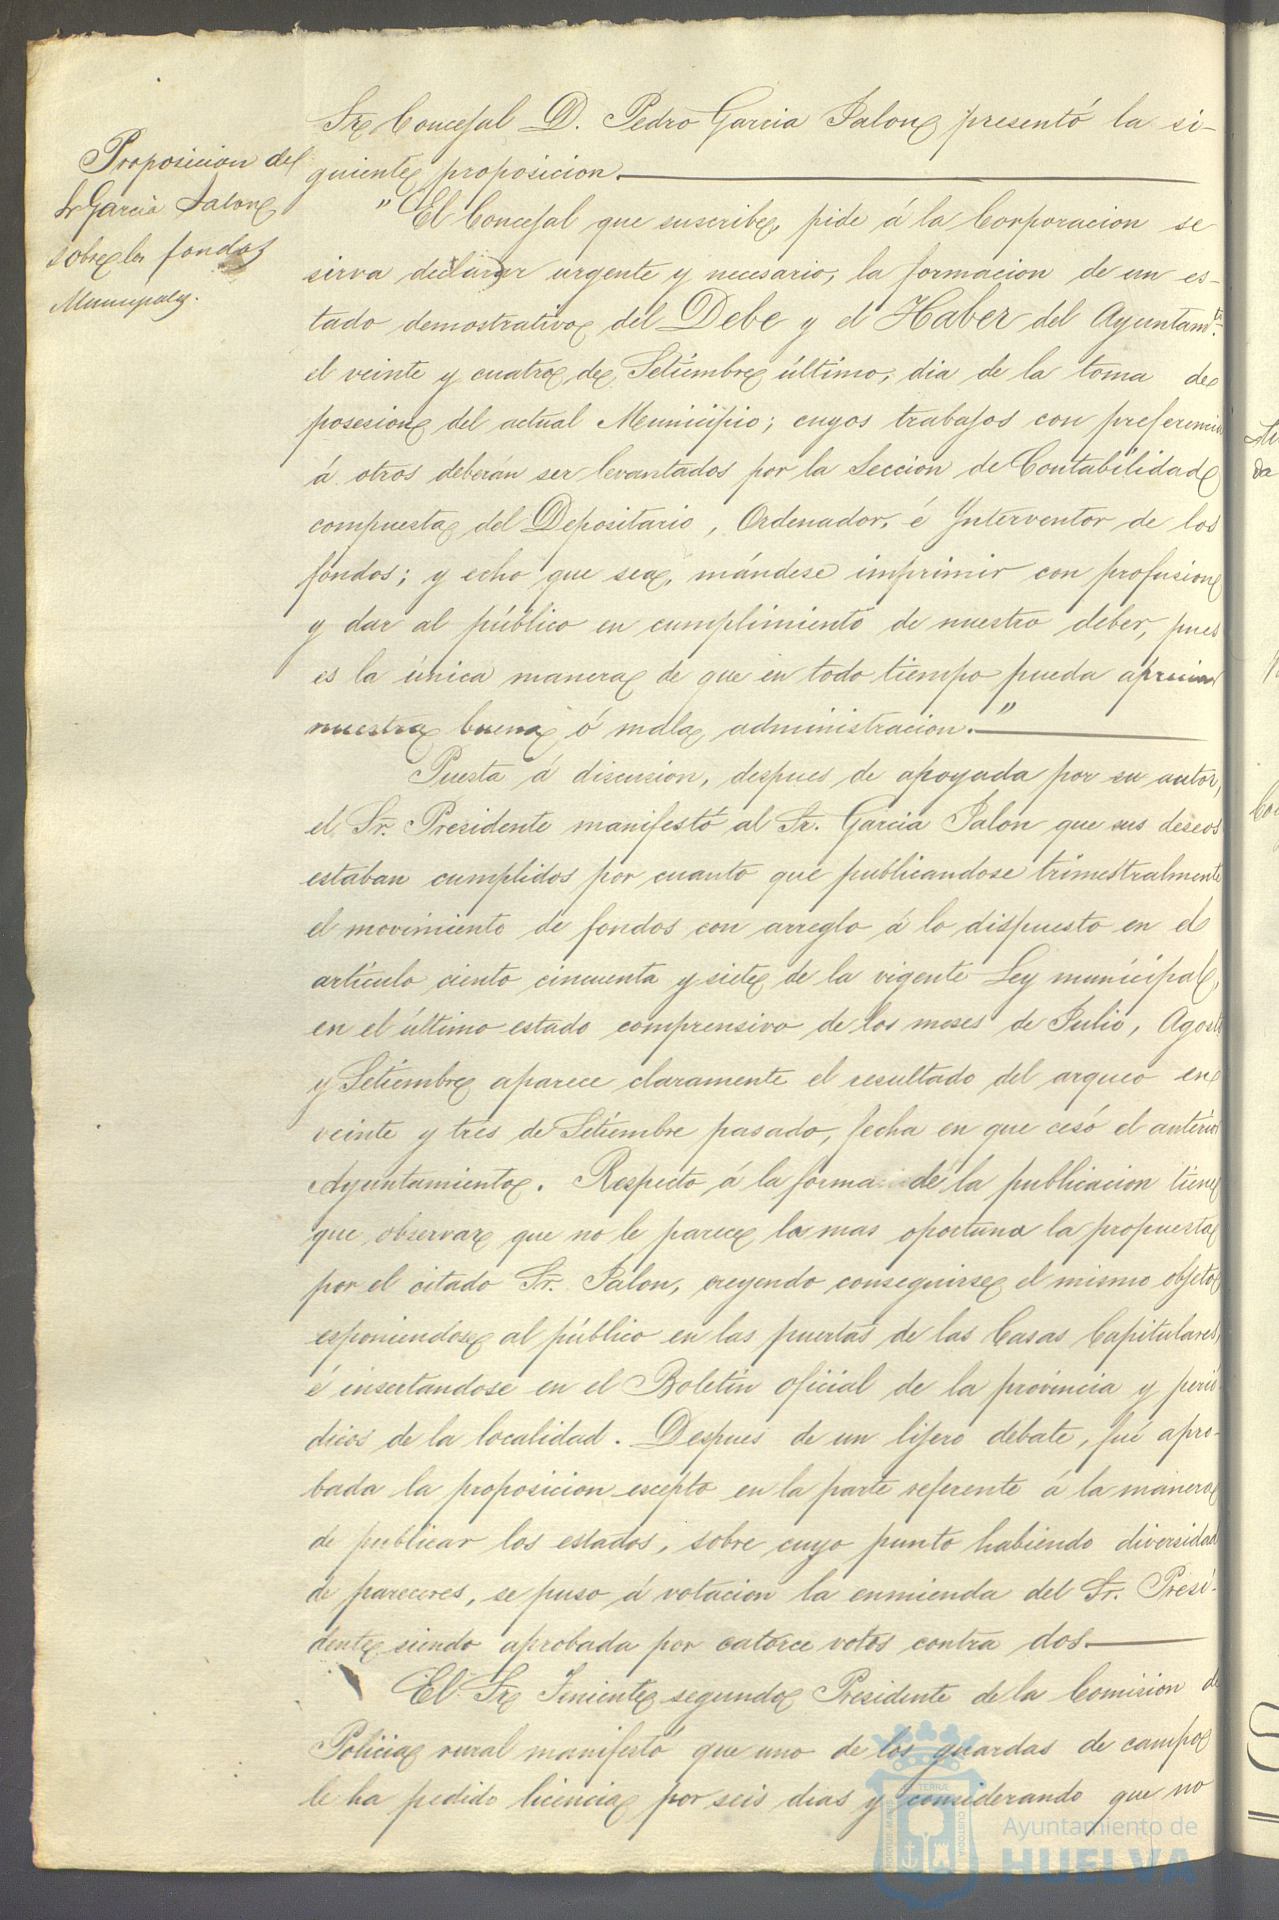 Proposicion del
Sr Garcia Jalon
sobre los fondos
Municipales.
Sr. Concejal D. Pedro Garcia Jalon presentó la si-
guiente proposicion.
"El Concejal que suscribe, pide á la Corporacion se
sirva declarar urgente y necesario, la formacion de un es-
tado demostrativo del Debe y el Haber del Ayuntamto.
el veinte y cuatro de Setiembre último, dia de la toma de
posesion del actual Municipio; cuyos trabajos con preferencia
á otros deberán ser levantados por la Seccion de Contabilidad
compuesta del Depositario, Ordenador, é Ynterventor de los
fondos; y echo que sea, mándese imprimir con profusion
y dar al público en cumplimiento de nuestro deber, pues
es la única manera de que en todo tiempo pueda apreciar
nuestra buena ó mala administracion."
Puesta á discusion, despues de apoyada por su autor,
el Sr. Presidente manifestó al Sr. Garcia Jalon que sus deseos
estaban cumplidos por cuanto que publicandose trimestralmente
el movimiento de fondos con arreglo á lo dispuesto en el
artículo ciento cincuenta y siete de la vigente Ley municipal,
en el último estado comprensivo de los meses de Julio, Agosto
y Setiembre aparece claramente el resultado del arqueo en
veinte y tres de Setiembre pasado, fecha en que cesó el anterior
Ayuntamiento. Respecto á la forma de la publicacion tiene
que observar que no le parece la mas oportuna la propuesta
por el citado Sr. Jalon, creyendo conseguirse el mismo objeto
esponiendose al público en las puertas de las Casas Capitulares,
é insertandose en el Boletin oficial de la provincia y perió-
dicos de la localidad. Despues de un lijero debate, fué apro-
bada la proposicion escepto en la parte referente á la manera
de publicar los estados, sobre cuyo punto habiendo diversidad
de pareceres, se puso á votacion la enmienda del Sr. Presi-
dente siendo aprobada por catorce votos contra dos.
El Sr. Teniente segundo Presidente de la Comision de
Policia rural manifestó que uno de los guardas de campo
le ha pedido licencia por seis dias y considerando que no
Ayuntamiento de
HUELVA